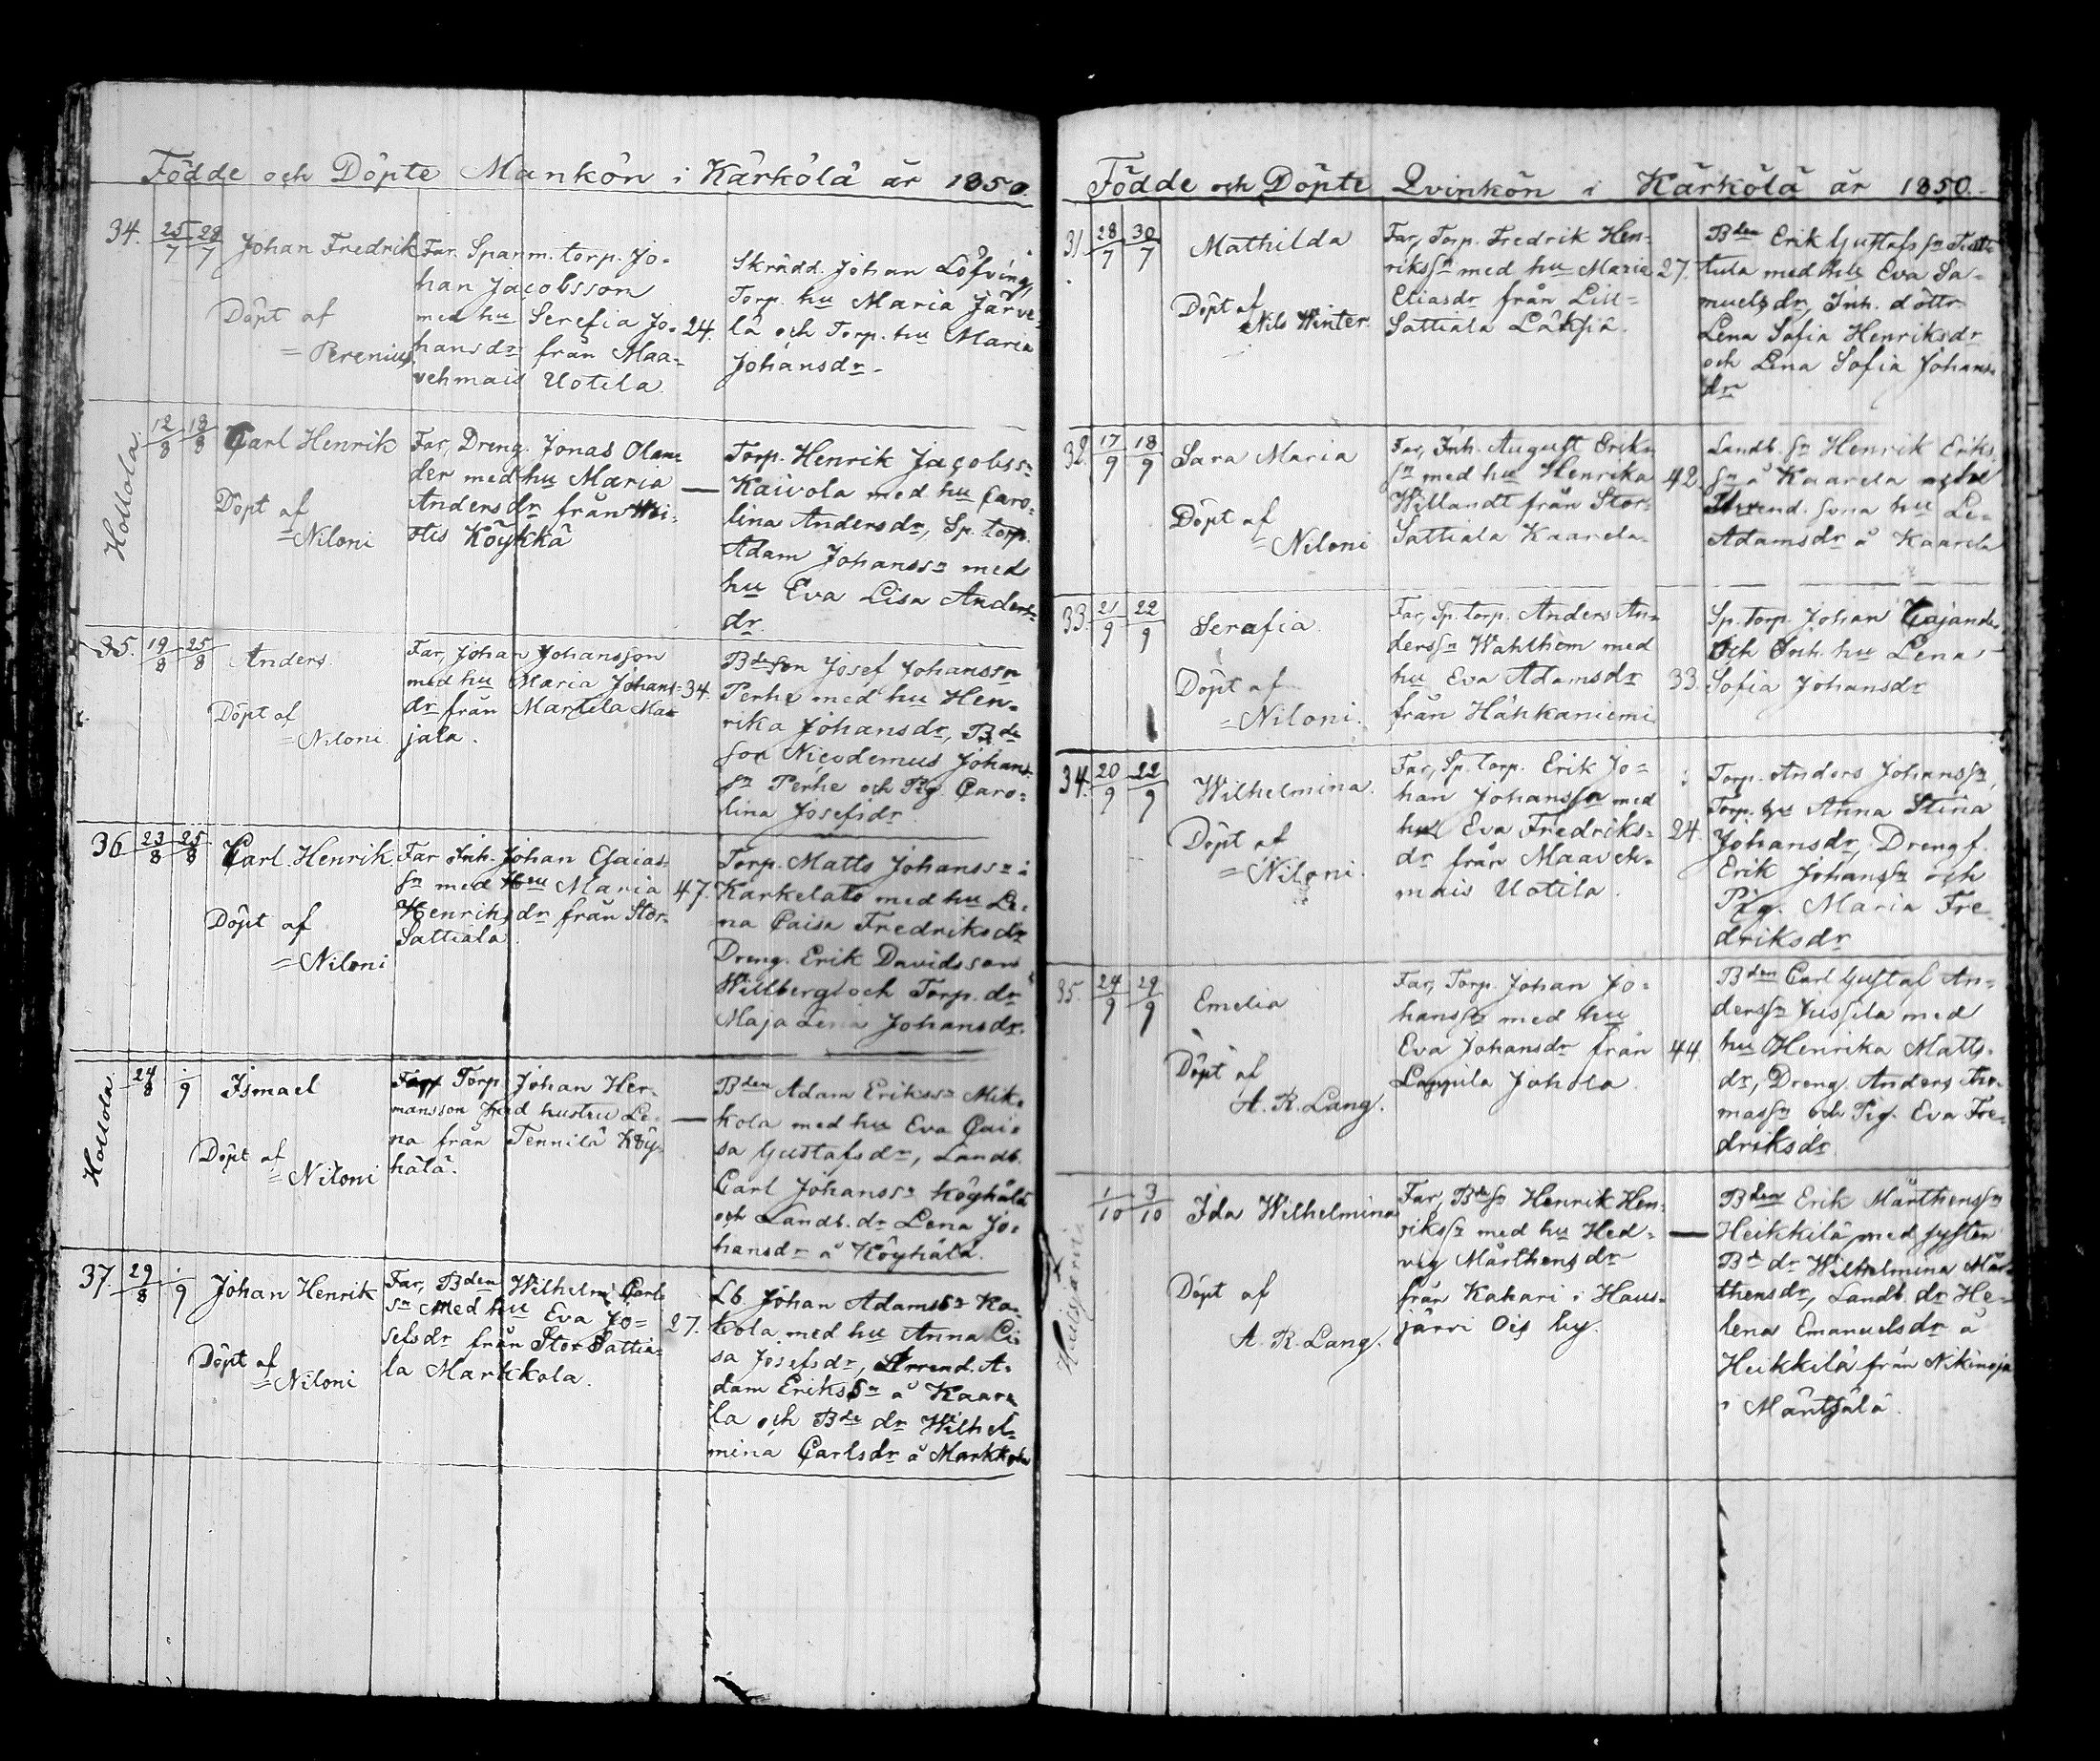 Födde och Döpte Mankön i Kärkölä år 1850.
34. 25/7 28/7 Johan Fredrik
Döpt af
= Perenius.
Far. Spanm. torp. Jo-
han Jacobsson
med hu Serefia Jo-
hansdr från Maa-
vehmais Uotila.
24.
Skrädd. Johan Löfving,
Torp. hu Maria Järve-
lä och Torp. hu Maria
Johansdr.
Hollola. 12/8 18/8 Carl Henrik
Döpt af
=Niloni
Far, Dreng. Jonas Olan-
der med hu Maria
Andersdr från
Köykkä
—
Torp. Henrik Jacobssn
Kaivola med hu Caro-
lina Andersdr, Sp. torp.
Adam Johanssn med
hu Eva Lisa Anders-
dr.
35. 19/8 25/8 Anders.
Döpt af
=Niloni.
Far, Johan Johansson
med hu Maria Johans-
dr från Martela Maa-
jala.
34.
Bdeson Josef Johanssn
Perhe med hu Hen-
rika Johansdr, Bde
son Nicodemus Johans-
sn Perhe och Pig. Caro-
lina Josefsdr.
36 23/8 25/8 Carl Henrik
Döpt af
=Niloni
Far Inh. Johan Esaias-
sn med Hu Maria
Henriksdr från Stor-
Sattiala.
47.
Torp. Matts Johanssn i
Karkelato med hu Le-
na Caisa Fredriksdr
Dreng. Erik Davidsson
Willberg och Torp. dr
Maja Lena Johansdr.
Hollola. 24/8 ./9 Ismael
Döpt af
=Niloni
Torp. Johan Her-
mansson med hustru Le-
na från Tennilä Köy-
hälä.
—
Bden Adam Erikssn Mik-
kola med hu Eva Cai-
sa Gustafsdr, Landb.
Carl Johanssn Köyhälä
och Landb. dr Lena Jo-
hansdr å Köyhälä.
37. 29/8 ./9 Johan Henrik
Döpt af
=Niloni
Far, Bden Wilhelm Carls
sn med hu Eva Jo-
sefsdr från Stor Sattia-
la Markkola.
27.
Lb. Johan Adamssn Ka-
kola med hu Anna Li-
sa Josefsdr, Arrend. A-
dam Erikssn å Kaare
la och Bde dr Wilhel-
mina Carlsdr å Markkola
Födde och Döpte Qvinkön i Kärkölä år 1850.
31. 28/7 30/7 Mathilda
Döpt af
Nils Winter.
Far, Torp. Fredrik Hen-
rikssn med hu Maria
Eliasdr från Lill-
Sattiala Läksiä.
27.
Bden Erik Gustafssn
tula med hu Eva Sa-
muelsdr, Inh. döttr.
Lena Sofia Henriksdr
och Lena Sofia Johans-
dr
32. 17/9 18/9 Sara Maria
Döpt af
=Niloni
Far, Inh. August Eriks-
sn med hu Henrika
Willandt från Stor-
Sattiala Kaarela.
42.
Landb. sn Henrik Eriks-
sn å Kaarela och
Arrend. sona hu Le-
Adamsdr å Kaarela
33. 21/9 22/9 Serafia.
Döpt af
=Niloni.
Far, Sp. torp. Anders An-
derssn Wahlthem med
hu Eva Adamsdr
från Hähkäniemi
33.
Sp. torp. Johan Cajander
och Inh. hu Lena
Sofia Johansdr
34. 20/9 22/9 Wilhelmina.
Döpt af
=Niloni.
Far, Sp. torp. Erik Jo-
han Johanssn med
hu Eva Fredriks-
dr från Maaveh-
mais Uotila.
24.
Torp. Anders Johanssn,
Torp. hu Anna Stina
Johansdr, Drengf.
Erik Johanssn och
Pig. Maria Fre-
driksdr
35. 24/9 29/9 Emelia
Döpt af
A. R. Lang.
Far, Torp. Johan Jo-
hanssn med hu
Eva Johansdr från
Lappila Johola.
44
Bden Carl Gustaf An-
derssn Jussila med
hu Henrika Matts-
dr, Dreng. Anders Tho-
massn och Pig. Eva Fre-
driksdr
Hausjärvi. 1/10 3/10 Ida Wilhelmina
Döpt af
A. R. Lang.
Far, Bdesn Henrik Hen-
rikssn med hu Hed-
vig Mårthensdr
från Kakari i Haus-
järvi Ois by.
—
Bden Erik Mårthenssn
Heikkilä med systen
Bde dr Wilhelmina Mår-
thensdr, Landb. dr He-
lena Emanuelsdr å
Heikkilä från Nikinoja
i Mäntsälä.